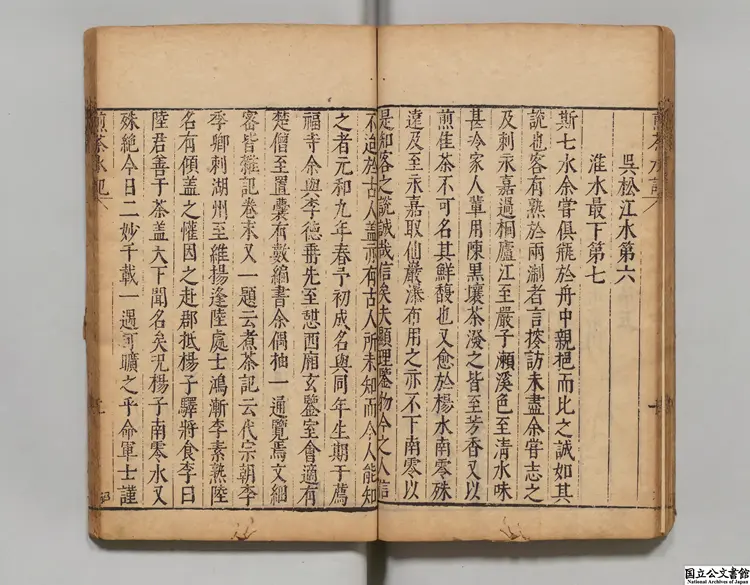 煎茶水記
吳松江水第六
淮水最下第七
斯七水余嘗俱瓶於舟中親挹而比之誠如其
說也客有熟於兩淛者言搜訪未盡余嘗志之
及刺永嘉過桐廬江至嚴子瀨溪色至清水味
甚冷家人輩用陳黑壞茶潑之皆至芳香又以
煎佳茶不可名其鮮馥也又愈於楊水南零殊
遠及至永嘉取仙巖瀑布用之亦不下南零以
是知客之說誠哉信矣夫顯理鑒物今之人信
不迨於古人盖亦有古人所未知而今人能知
之者元和九年春予初成名與同年生期于薦
福寺余與李德垂先至憇西廂玄鑒室會適有
楚僧至置囊有數編書余偶抽一通覽焉文細
密皆雜記卷末又一題云煮茶記云代宗朝李
季卿刺湖州至維揚逢陸處士鴻漸李素熟陸
名有傾盖之懽因之赴郡抵楊子驛將食李曰
陸君善于茶盖天下聞名矣況楊子南零水又
殊絕今日二妙千載一遇何曠之乎命軍士謹
煎茶水記
国立公文書館
National Archives of Japan